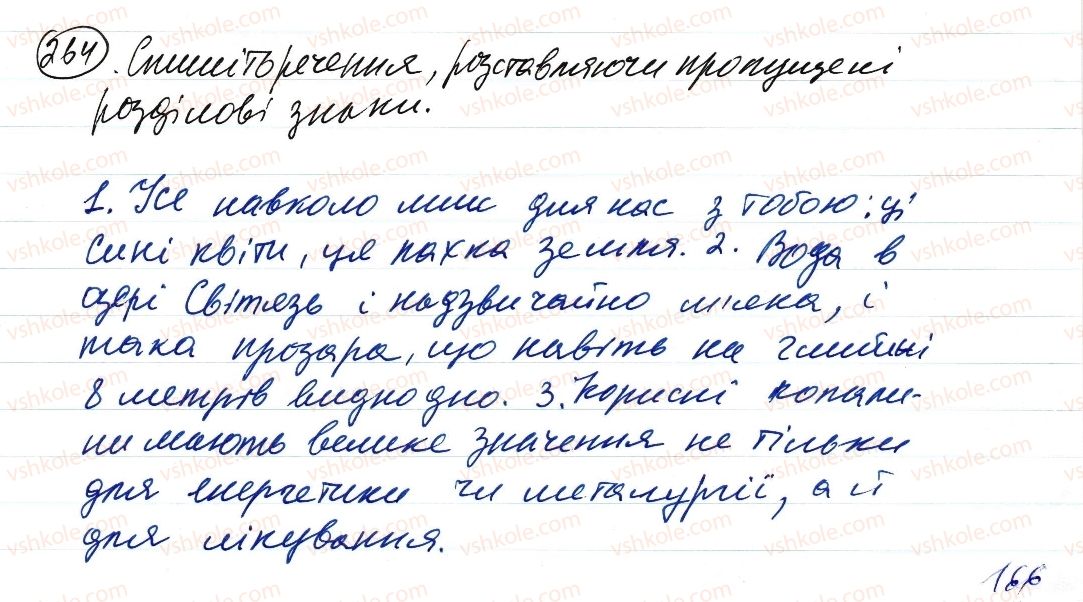 264. Спишіть речення, розставляючи пропущені
розділові знаки.
1. Усе навколо лиш для нас з тобою: ці
сині квіти, ця пахка земля. 2. Вода в
озері Світязь і надзвичайно м'яка, і
така прозора, що навіть на глибині
8 метрів видно дно. 3. Корисні копали-
ни мають велике значення не тільки
для енергетики чи металургії, а й
для лікування.
166